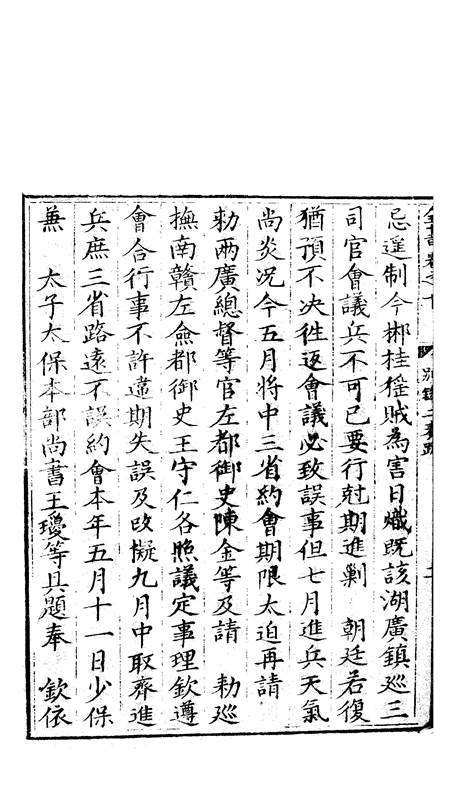 忌遥制今郴桂猺賊為害日熾旣該湖廣鎮廵三
司官會議兵不可已要行尅期進剿　朝廷若復
猶預不决徃返會議必致誤事但七月進兵天氣
尚炎况今五月將中三省約會期限太迫再請
勑兩廣總督等官左都御史陳金等及請　勑廵
撫南贛左僉都御史王守仁各照議定事理欽遵
會合行事不許違期失誤及改擬九月中取齊進
兵庶三省路遠不誤約會本年五月十一日少保
兼　太子太保本部尚書王瓊等具題奉　欽依